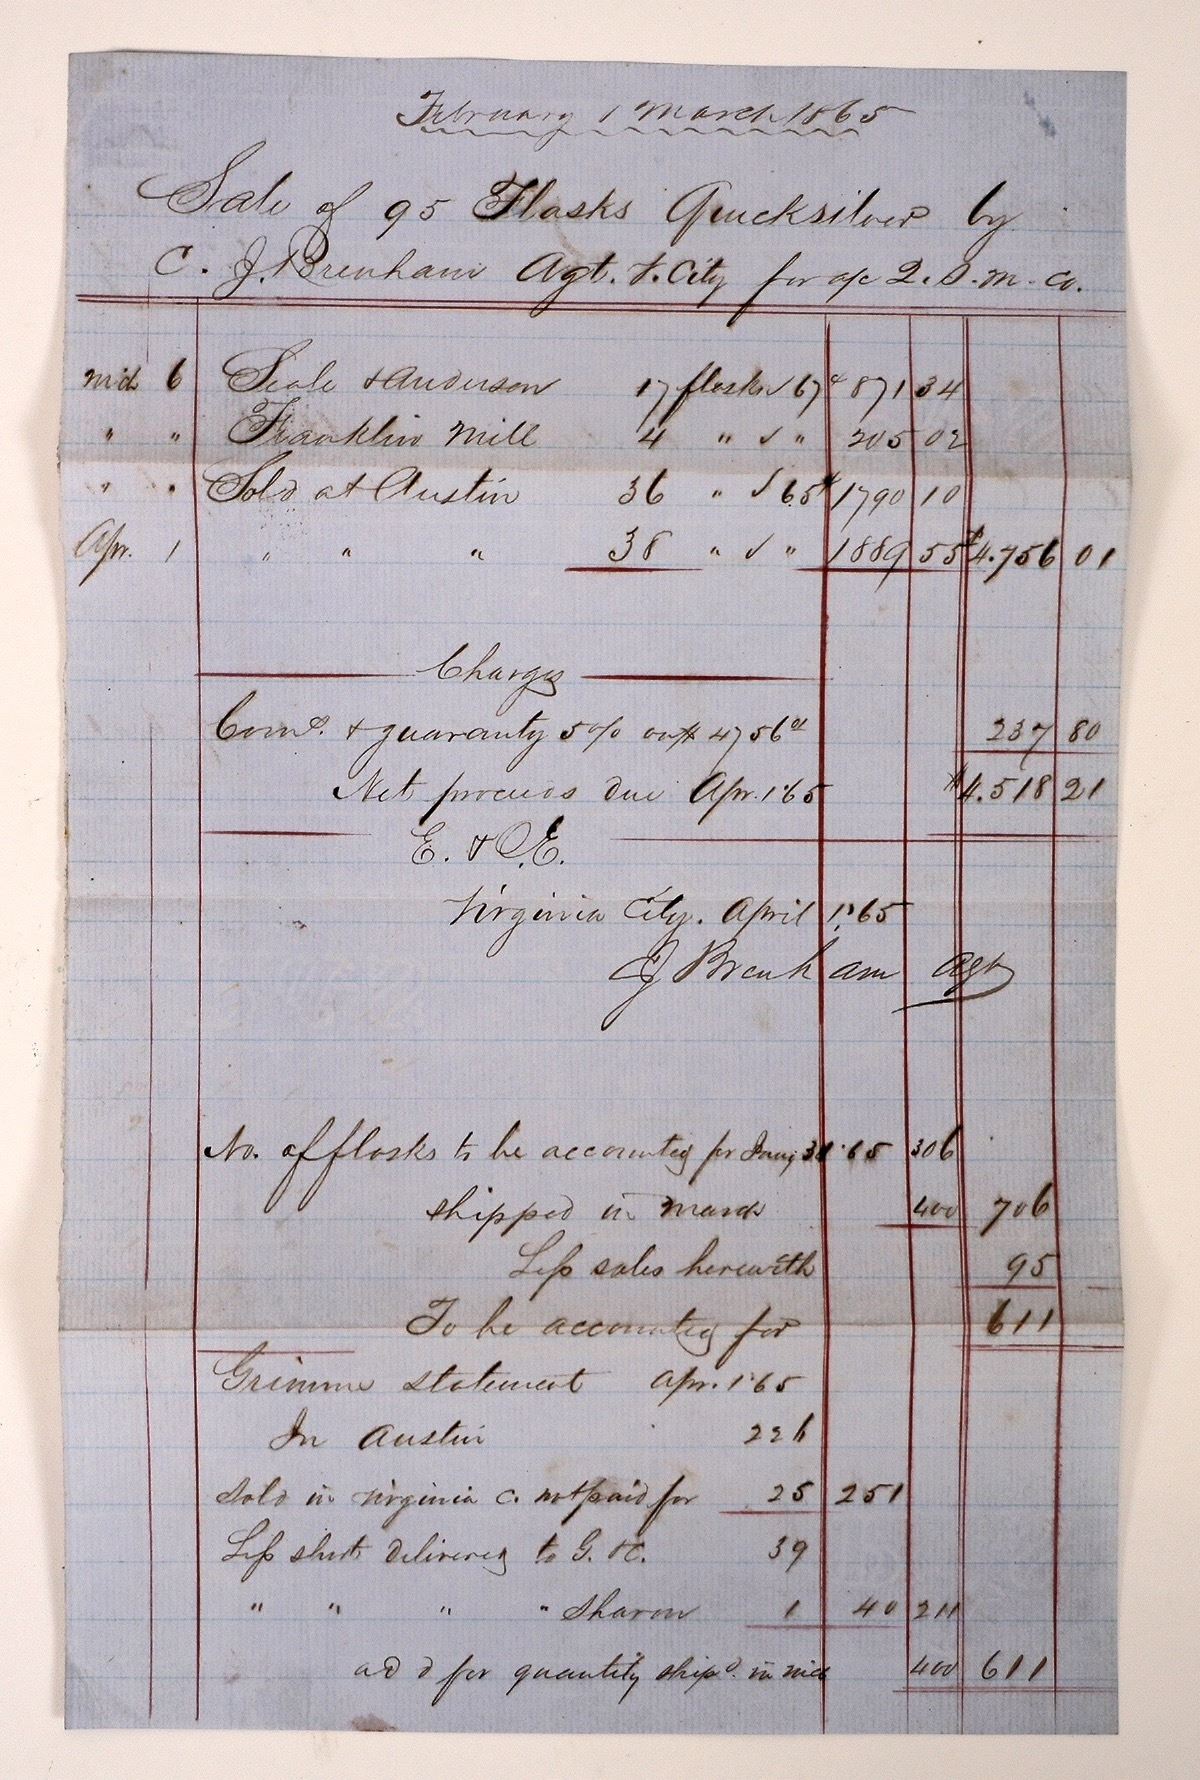 February & March 1865
Sale of 95 Flasks Quicksilver by
C. J. Brenham Agt. V. City for a/c Q. S. M. Co.
Mch 6 Seale & Anderson 17 flasks ✓ 67¢ 871 34
" " Franklin Mill 4 " ✓ " 205 02
" " Sold at Austin 36 " ✓ 65¢ 1790 10
Apr. 1 " " " 38 " ✓ " 1889 55 $4.756 01
Charges
Coms. & guaranty 5% on $4756 01 237 80
Net proceeds due Apr. 1 '65 $4.518 21
E. & O.E.
Virginia City. April 1, '65
CJ Brenham Agt
No. of flasks to be accounted for Jany 31 '65 306
shipped in March 400 706
Less sales herewith 95
To be accounted for 611
Grimm statement Apr. 1 '65
In Austin 226
Sold in Virginia C. not paid for 25 251
Less short delivered to G. & C. 39
" " " " Sharon 1 40 211
add for quantity shipd. in Mch 400 611